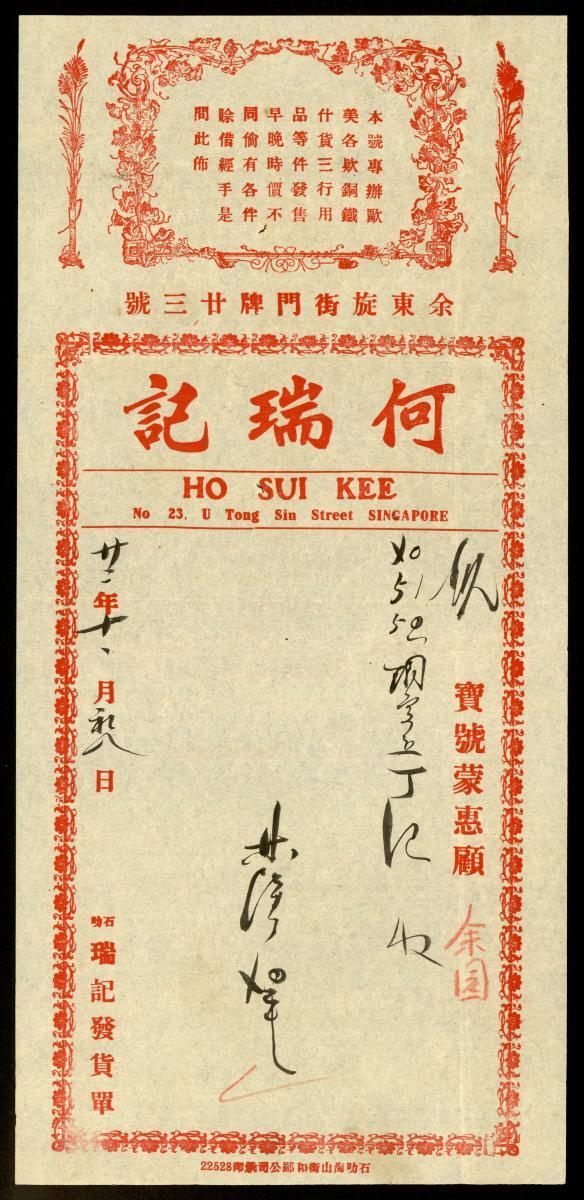 本號專辦歐
美各欵銅鐵
什貨三行用
品等件發售
早晚時價不
同倘有各件
賒借經手是
問此佈
余東旋街門牌廿三號
何瑞記
HO SUI KEE
No 23, U Tong Sin Street SINGAPORE
寶號蒙惠顧
余
丁
收
廿二年十一月初八日
石叻瑞記發貨單
石叻海山街和鄰公司承印22528